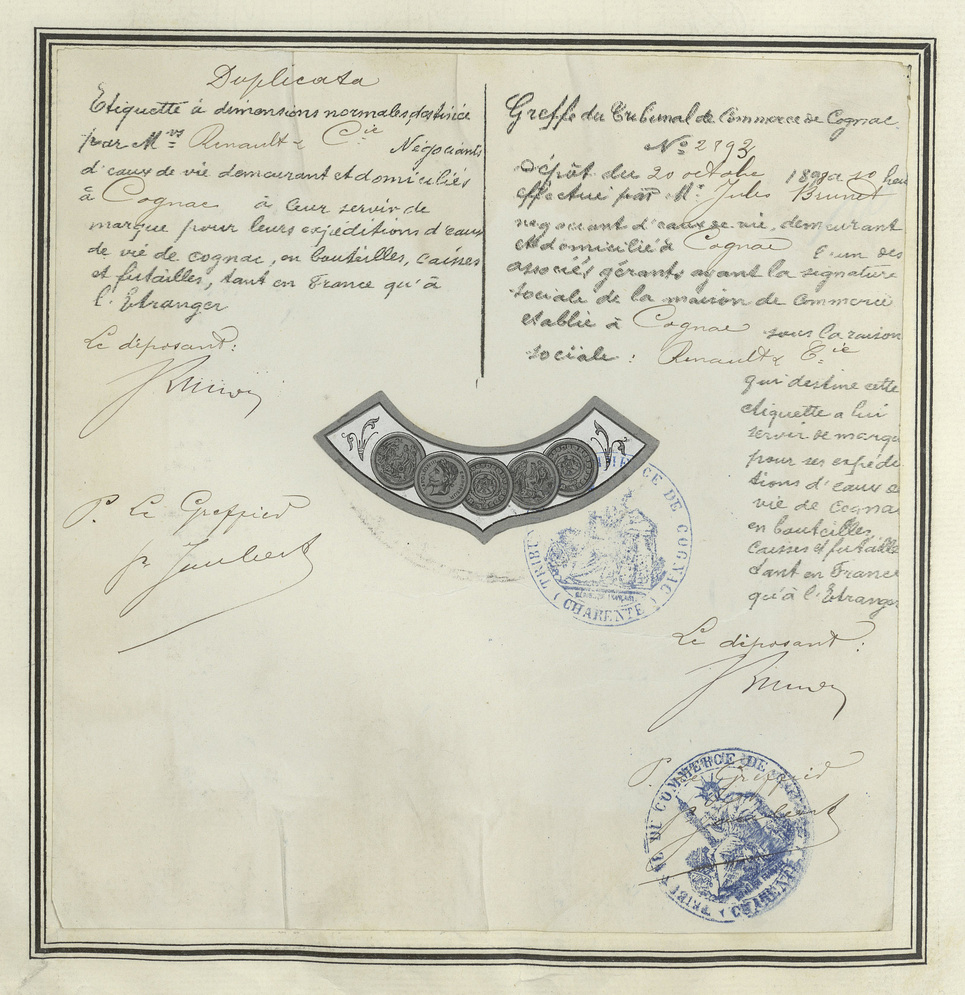 Duplicata
Etiquette à dimensions normales destinée
par M.rs Renault & Cie Négociants
d'eaux de vie demeurant et domiciliés
à Cognac à leur servir de
marque pour leurs expéditions d'eaux
de vie de cognac, en bouteilles, caisses
et futailles, tant en France qu'à
l'Etranger
Le déposant:
P. Le Greffier
Joubert
Greffe du Tribunal de Commerce de Cognac
No 2793
Dépôt du 20 octobre 10 heu
effectué par Mr. Jules Brunet
negociant d'eaux de vie, demeurant
et domicilié à Cognac l'un des
associés gérants ayant la signature
sociale de la maison de Commerce
etablie à Cognac sous la raison
sociale : Renault & Cie
qui destine cette
etiquette a lui
servir de marque
pour ses expédi
tions d'eaux de
vie de Cognac
en bouteilles,
caisses et futailles
tant en France
qu'à l'Etranger
DE COGNAC
TRIBU
(CHARENTE)
Le déposant:
P. Le Greffier
Joubert
TRIBUNAL DE COMMERCE DE
(CHARENTE)